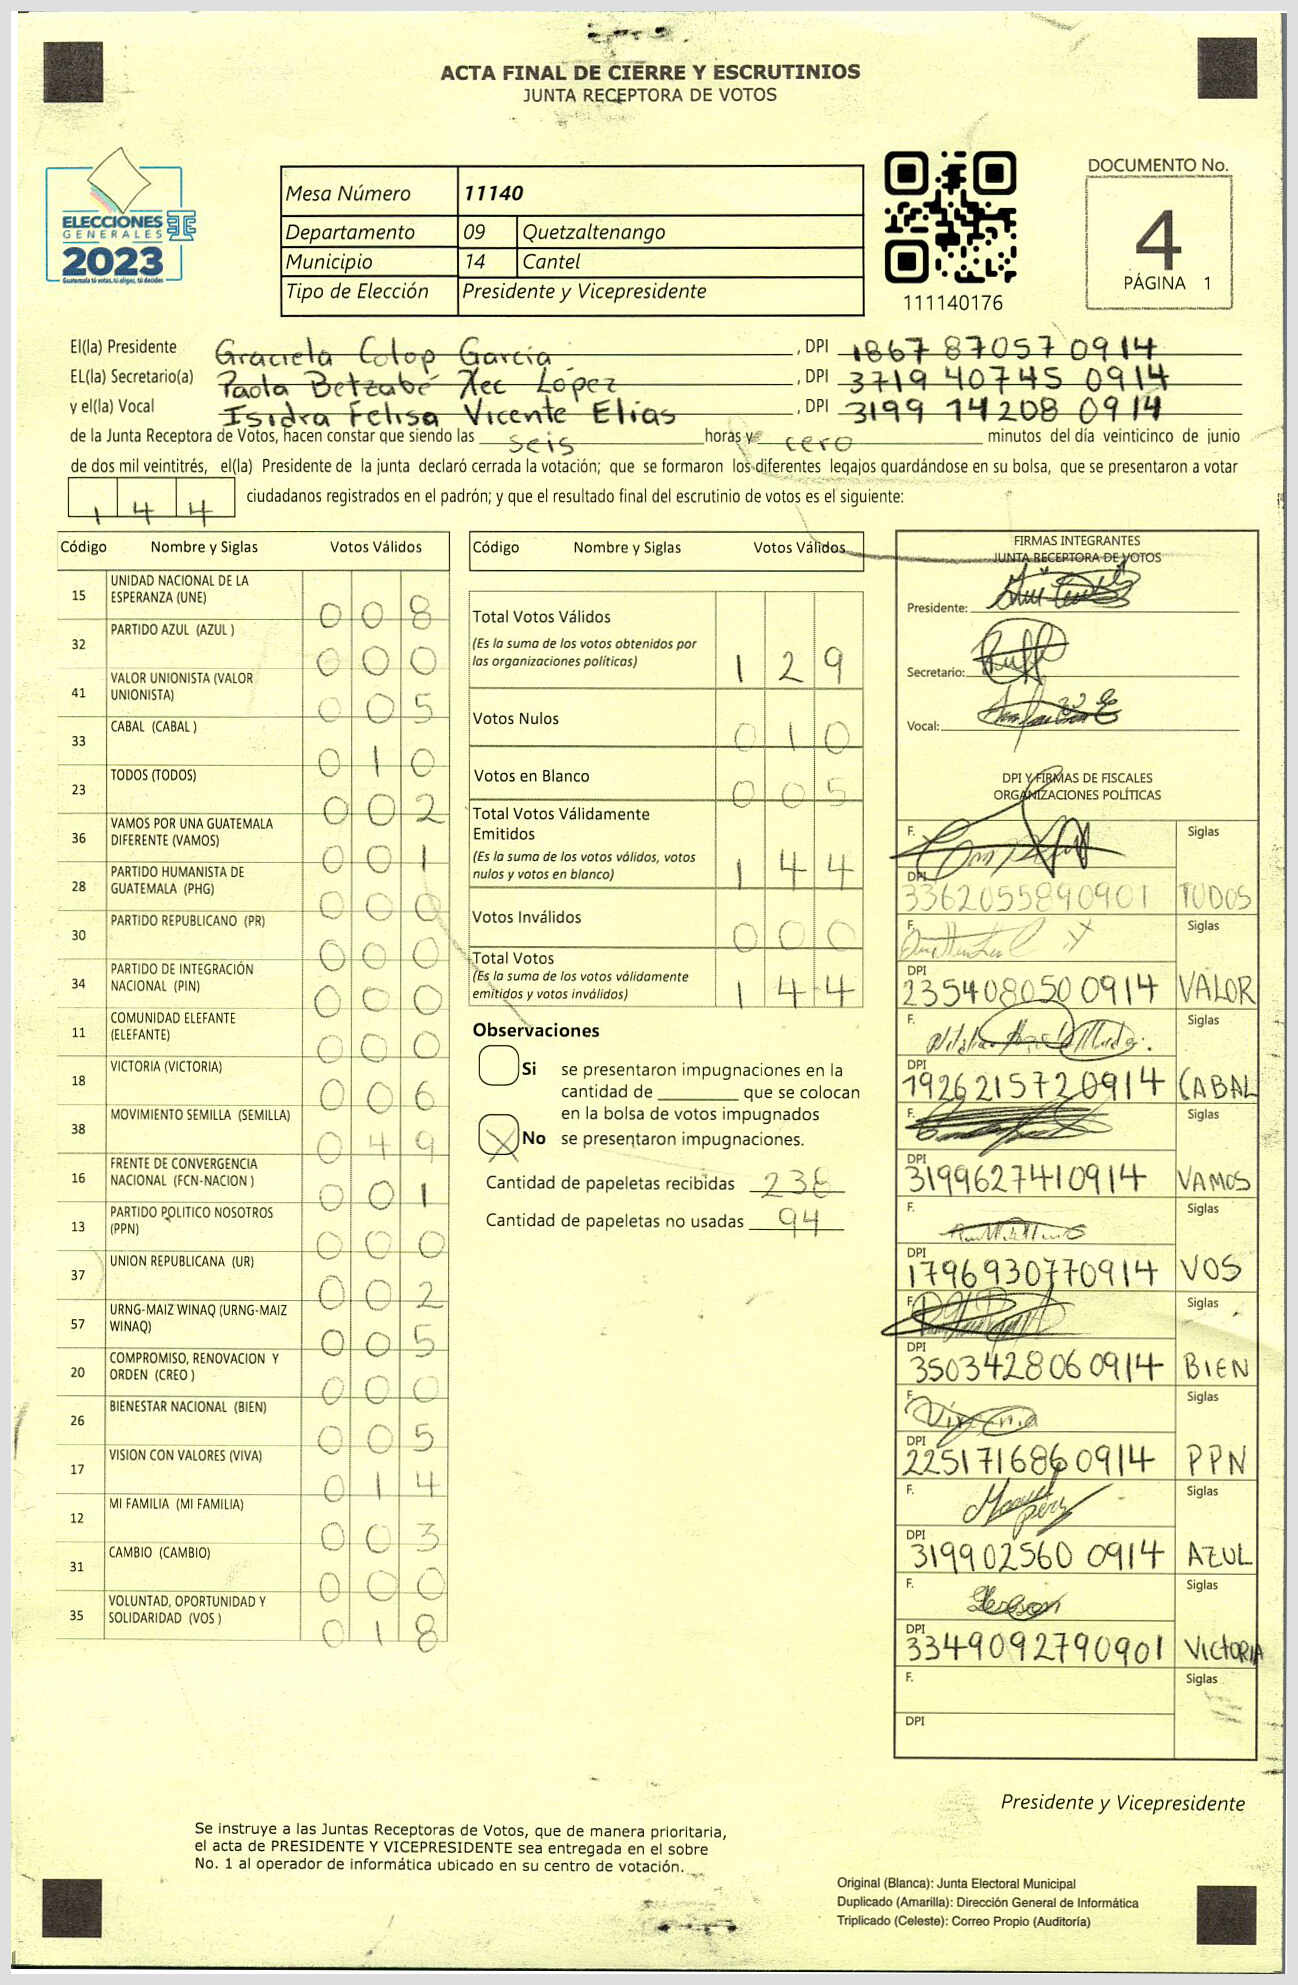 ACTA FINAL DE CIERRE Y ESCRUTINIOS
JUNTA RECEPTORA DE VOTOS
ELECCIONES
GENERALES
2023
Guatemala tú votas, tú eliges, tú decides
Mesa Número 11140
Departamento 09 Quetzaltenango
Municipio 14 Cantel
Tipo de Elección Presidente y Vicepresidente
111140176
DOCUMENTO No.
4
PÁGINA 1
El(la) Presidente Graciela Colop García, DPI 1867 87057 0914
EL(la) Secretario(a) Paola Betzabé Xec López, DPI 3719 40745 0914
y el(la) Vocal Isidra Felisa Vicente Elías, DPI 3199 74208 0914
de la Junta Receptora de Votos, hacen constar que siendo las seis horas y cero minutos del día veinticinco de junio
de dos mil veintitrés, el(la) Presidente de la junta declaró cerrada la votación; que se formaron los diferentes legajos guardándose en su bolsa, que se presentaron a votar
144 ciudadanos registrados en el padrón; y que el resultado final del escrutinio de votos es el siguiente:
Código Nombre y Siglas Votos Válidos
15 UNIDAD NACIONAL DE LA ESPERANZA (UNE) 008
32 PARTIDO AZUL (AZUL ) 000
41 VALOR UNIONISTA (VALOR UNIONISTA) 005
33 CABAL (CABAL ) 010
23 TODOS (TODOS) 002
36 VAMOS POR UNA GUATEMALA DIFERENTE (VAMOS) 001
28 PARTIDO HUMANISTA DE GUATEMALA (PHG) 000
30 PARTIDO REPUBLICANO (PR) 000
34 PARTIDO DE INTEGRACIÓN NACIONAL (PIN) 000
11 COMUNIDAD ELEFANTE (ELEFANTE) 000
18 VICTORIA (VICTORIA) 006
38 MOVIMIENTO SEMILLA (SEMILLA) 049
16 FRENTE DE CONVERGENCIA NACIONAL (FCN-NACION ) 001
13 PARTIDO POLITICO NOSOTROS (PPN) 000
37 UNION REPUBLICANA (UR) 002
57 URNG-MAIZ WINAQ (URNG-MAIZ WINAQ) 005
20 COMPROMISO, RENOVACION Y ORDEN (CREO ) 000
26 BIENESTAR NACIONAL (BIEN) 005
17 VISION CON VALORES (VIVA) 014
12 MI FAMILIA (MI FAMILIA) 003
31 CAMBIO (CAMBIO) 000
35 VOLUNTAD, OPORTUNIDAD Y SOLIDARIDAD (VOS ) 018
Código Nombre y Siglas Votos Válidos
Total Votos Válidos 129
(Es la suma de los votos obtenidos por
las organizaciones políticas)
Votos Nulos 010
Votos en Blanco 005
Total Votos Válidamente
Emitidos 144
(Es la suma de los votos válidos, votos
nulos y votos en blanco)
Votos Inválidos 000
Total Votos 144
(Es la suma de los votos válidamente
emitidos y votos inválidos)
Observaciones
Si se presentaron impugnaciones en la
cantidad de ________ que se colocan
en la bolsa de votos impugnados
X No se presentaron impugnaciones.
Cantidad de papeletas recibidas 238
Cantidad de papeletas no usadas 94
FIRMAS INTEGRANTES
JUNTA RECEPTORA DE VOTOS
Presidente:
Secretario:
Vocal:
DPI Y FIRMAS DE FISCALES
ORGANIZACIONES POLÍTICAS
F. Siglas
DPI 3362055890901 TODOS
F. Siglas
DPI 235408050 0914 VALOR
F. Siglas
DPI 1926215720914 CABAL
F. Siglas
DPI 3199627410914 VAMOS
F. Siglas
DPI 1796930770914 VOS
F. Siglas
DPI 3503428060914 BIEN
F. Siglas
DPI 2251716860914 PPN
F. Manuel Perz Siglas
DPI 319902560 0914 AZUL
F. Gerson Siglas
DPI 3349092790901 VICTORIA
F. Siglas
DPI
Presidente y Vicepresidente
Se instruye a las Juntas Receptoras de Votos, que de manera prioritaria,
el acta de PRESIDENTE Y VICEPRESIDENTE sea entregada en el sobre
No. 1 al operador de informática ubicado en su centro de votación.
Original (Blanca): Junta Electoral Municipal
Duplicado (Amarilla): Dirección General de Informática
Triplicado (Celeste): Correo Propio (Auditoría)